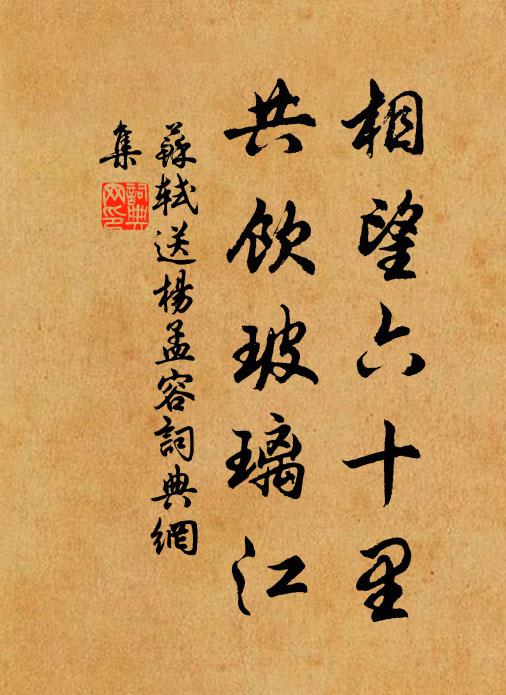 相望六十里
共飲玻璃江
蘇軾送楊孟容詞典網
集
詞典
网印